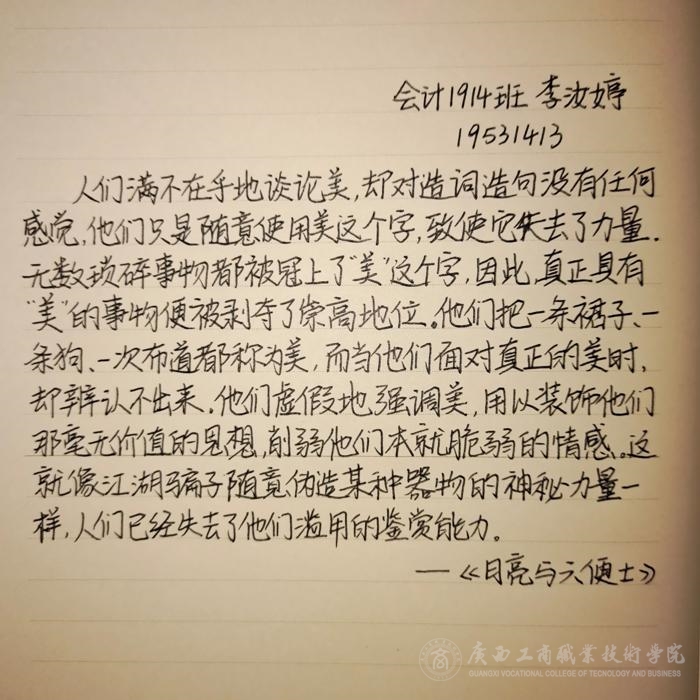 会计1914班 李汝婷
19531413
人们满不在乎地谈论美,却对造词造句没有任何
感觉,他们只是随意使用美这个字,致使它失去了力量.
无数琐碎事物都被冠上了“美”这个字,因此,真正具有
“美”的事物便被剥夺了崇高地位。他们把一条裙子、一
条狗、一次布道都称为美,而当他们面对真正的美时,
却辨认不出来.他们虚假地强调美,用以装饰他们
那毫无价值的思想,削弱他们本就脆弱的情感。这
就像江湖骗子随意伪造某种器物的神秘力量一
样,人们已经失去了他们滥用的鉴赏能力。
—《月亮与六便士》
广西工商職業技術學院
GUANGXI VOCATIONAL COLLEGE OF TECNOLOGY AND BUSINESS